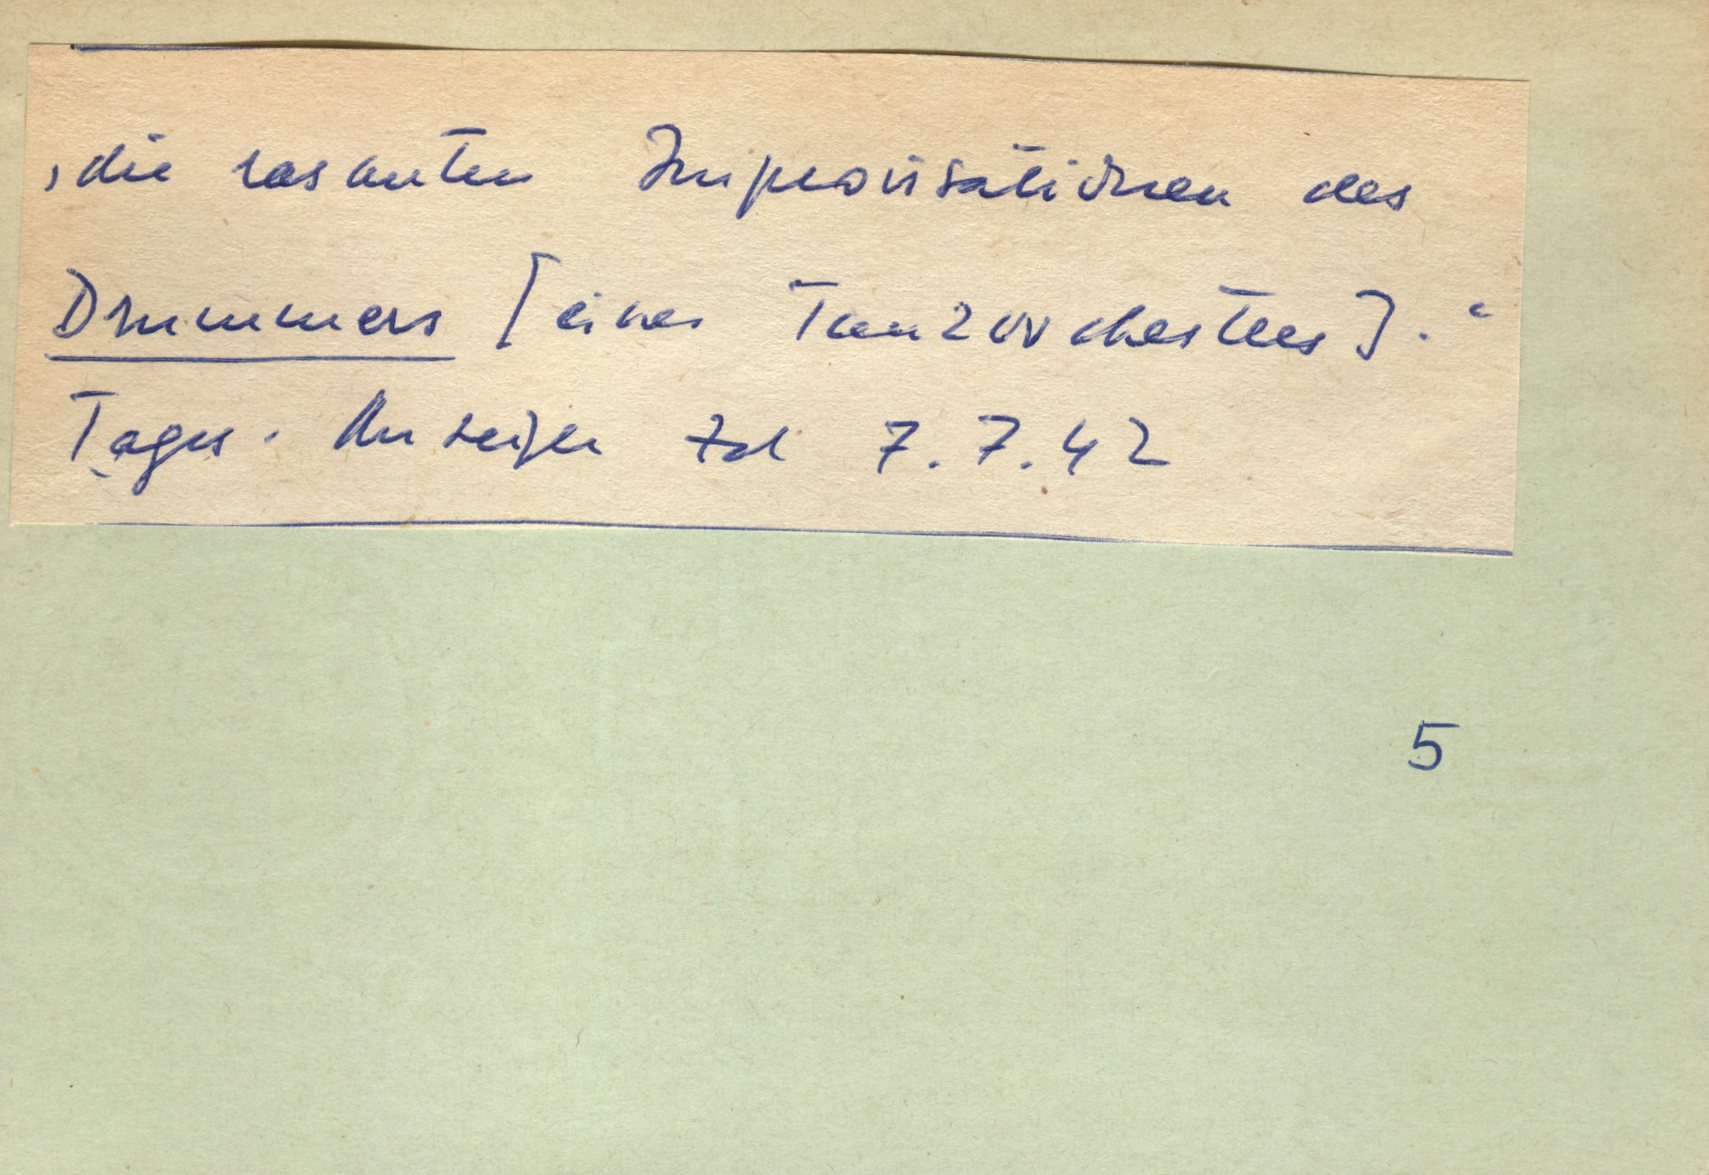 ‚die rasanten Improvisationen des
Drummers [eines Tanzorchesters].‘
Tages-Anzeiger Zch 7.7.42
5